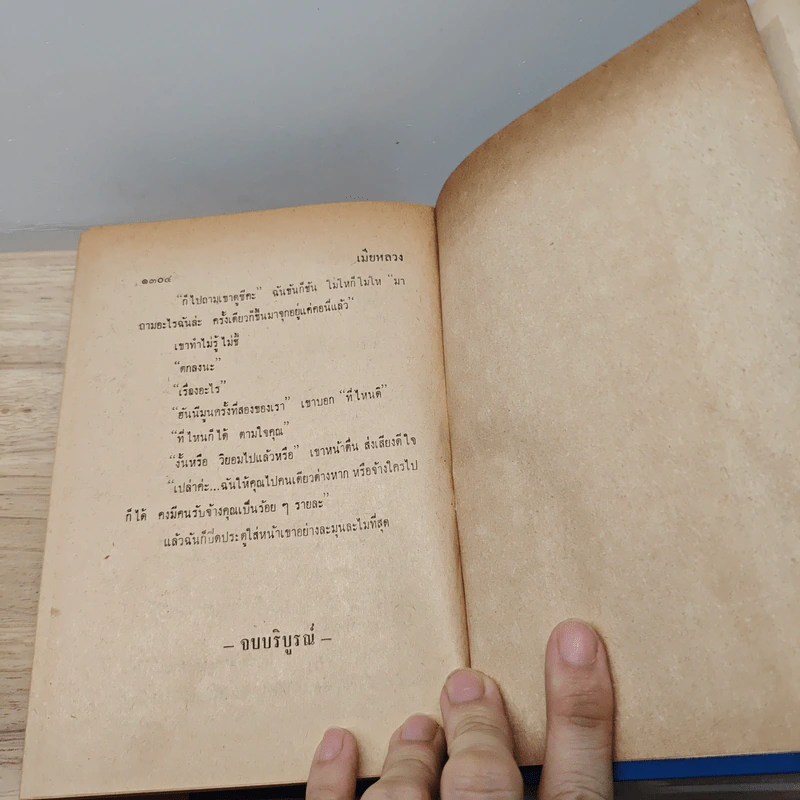 ๑๓๐๔
เมียหลวง
“ก็ไปถามเขาดูซีคะ” ฉันขันก็ขัน โมโหก็โมโห “มา
ถามอะไรฉันล่ะ ครั้งเดียวก็ขึ้นมาจุกอยู่แค่คอนี่แล้ว”
เขาทำไม่รู้ ไม่ชี้
“ตกลงนะ”
“เรื่องอะไร”
“ฮันนีมูนครั้งที่สองของเรา” เขาบอก “ที่ไหนดี”
“ที่ไหนก็ได้ ตามใจคุณ”
“งั้นหรือ วิยอมไปแล้วหรือ” เขาหน้าตื่น ส่งเสียงดีใจ
“เปล่าค่ะ...ฉันให้คุณไปคนเดียวต่างหาก หรือจ้างใครไป
ก็ได้ คงมีคนรับจ้างคุณเป็นร้อย ๆ รายละ”
แล้วฉันก็ปิดประตูใส่หน้าเขาอย่างละมุนละไมที่สุด
– จบบริบูรณ์ –